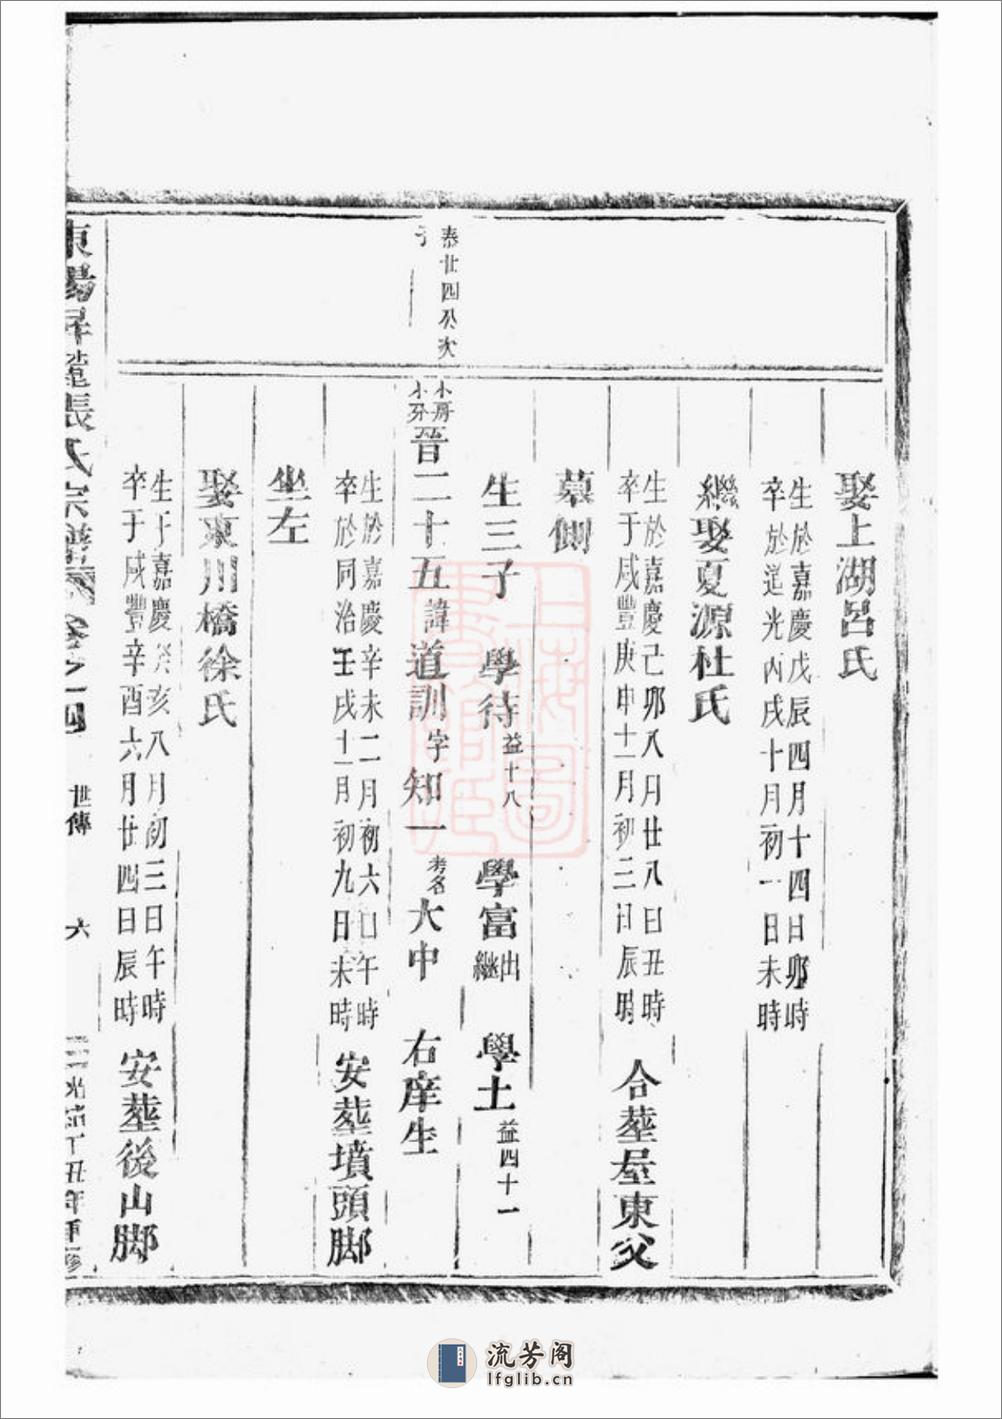 娶上湖呂氏
生於嘉慶戊辰四月十四日卯時
卒於道光丙戌十月初一日未時
繼娶夏源杜氏
生於嘉慶己卯八月廿八日丑時
卒于咸豐庚申十一月初二日辰時
合塟屋東父
墓側
生三子 學待 益十八 學富 出繼 學土 益四十一
泰廿四公次
子一
小房
晉二十五 諱 道訓 字 知一 考名 大中 右庠生
生於嘉慶辛未二月初六日午時
卒於同治壬戌十一月初九日未時
安塟墳頭脚
坐左
娶東川橋徐氏
生于嘉慶癸亥八月初三日午時
卒于咸豐辛酉六月廿四日辰時
安塟後山脚
東陽昇蘢張氏宗譜 卷之十四 世傳 六 光緒丁丑年重修
上海圖書館藏
流芳阁
lfglib.cn